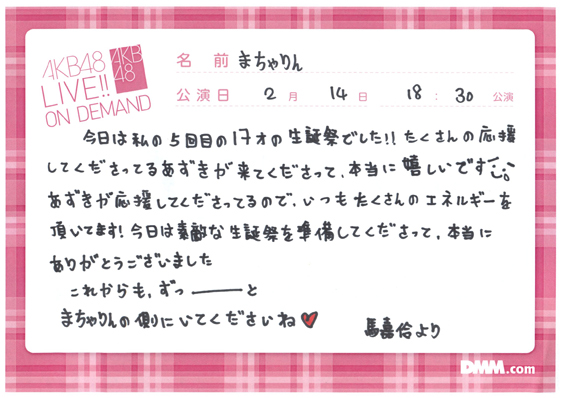 AKB48
LIVE!!
ON DEMAND
AKB
48
名前 まちゃりん
公演日 2月 14日 18:30公演
今日は私の5回目の17才の生誕祭でした!! たくさんの応援
してくださってるあずきが来てくださって、本当に嬉しいです
あずきが応援してくださってるので、いつもたくさんのエネルギーを
頂いてます! 今日は素敵な生誕祭を準備してくださって、本当に
ありがとうございました
これからも、ずっ――――と
まちゃりんの側にいてくださいね♥
馬嘉伶より
DMM.com